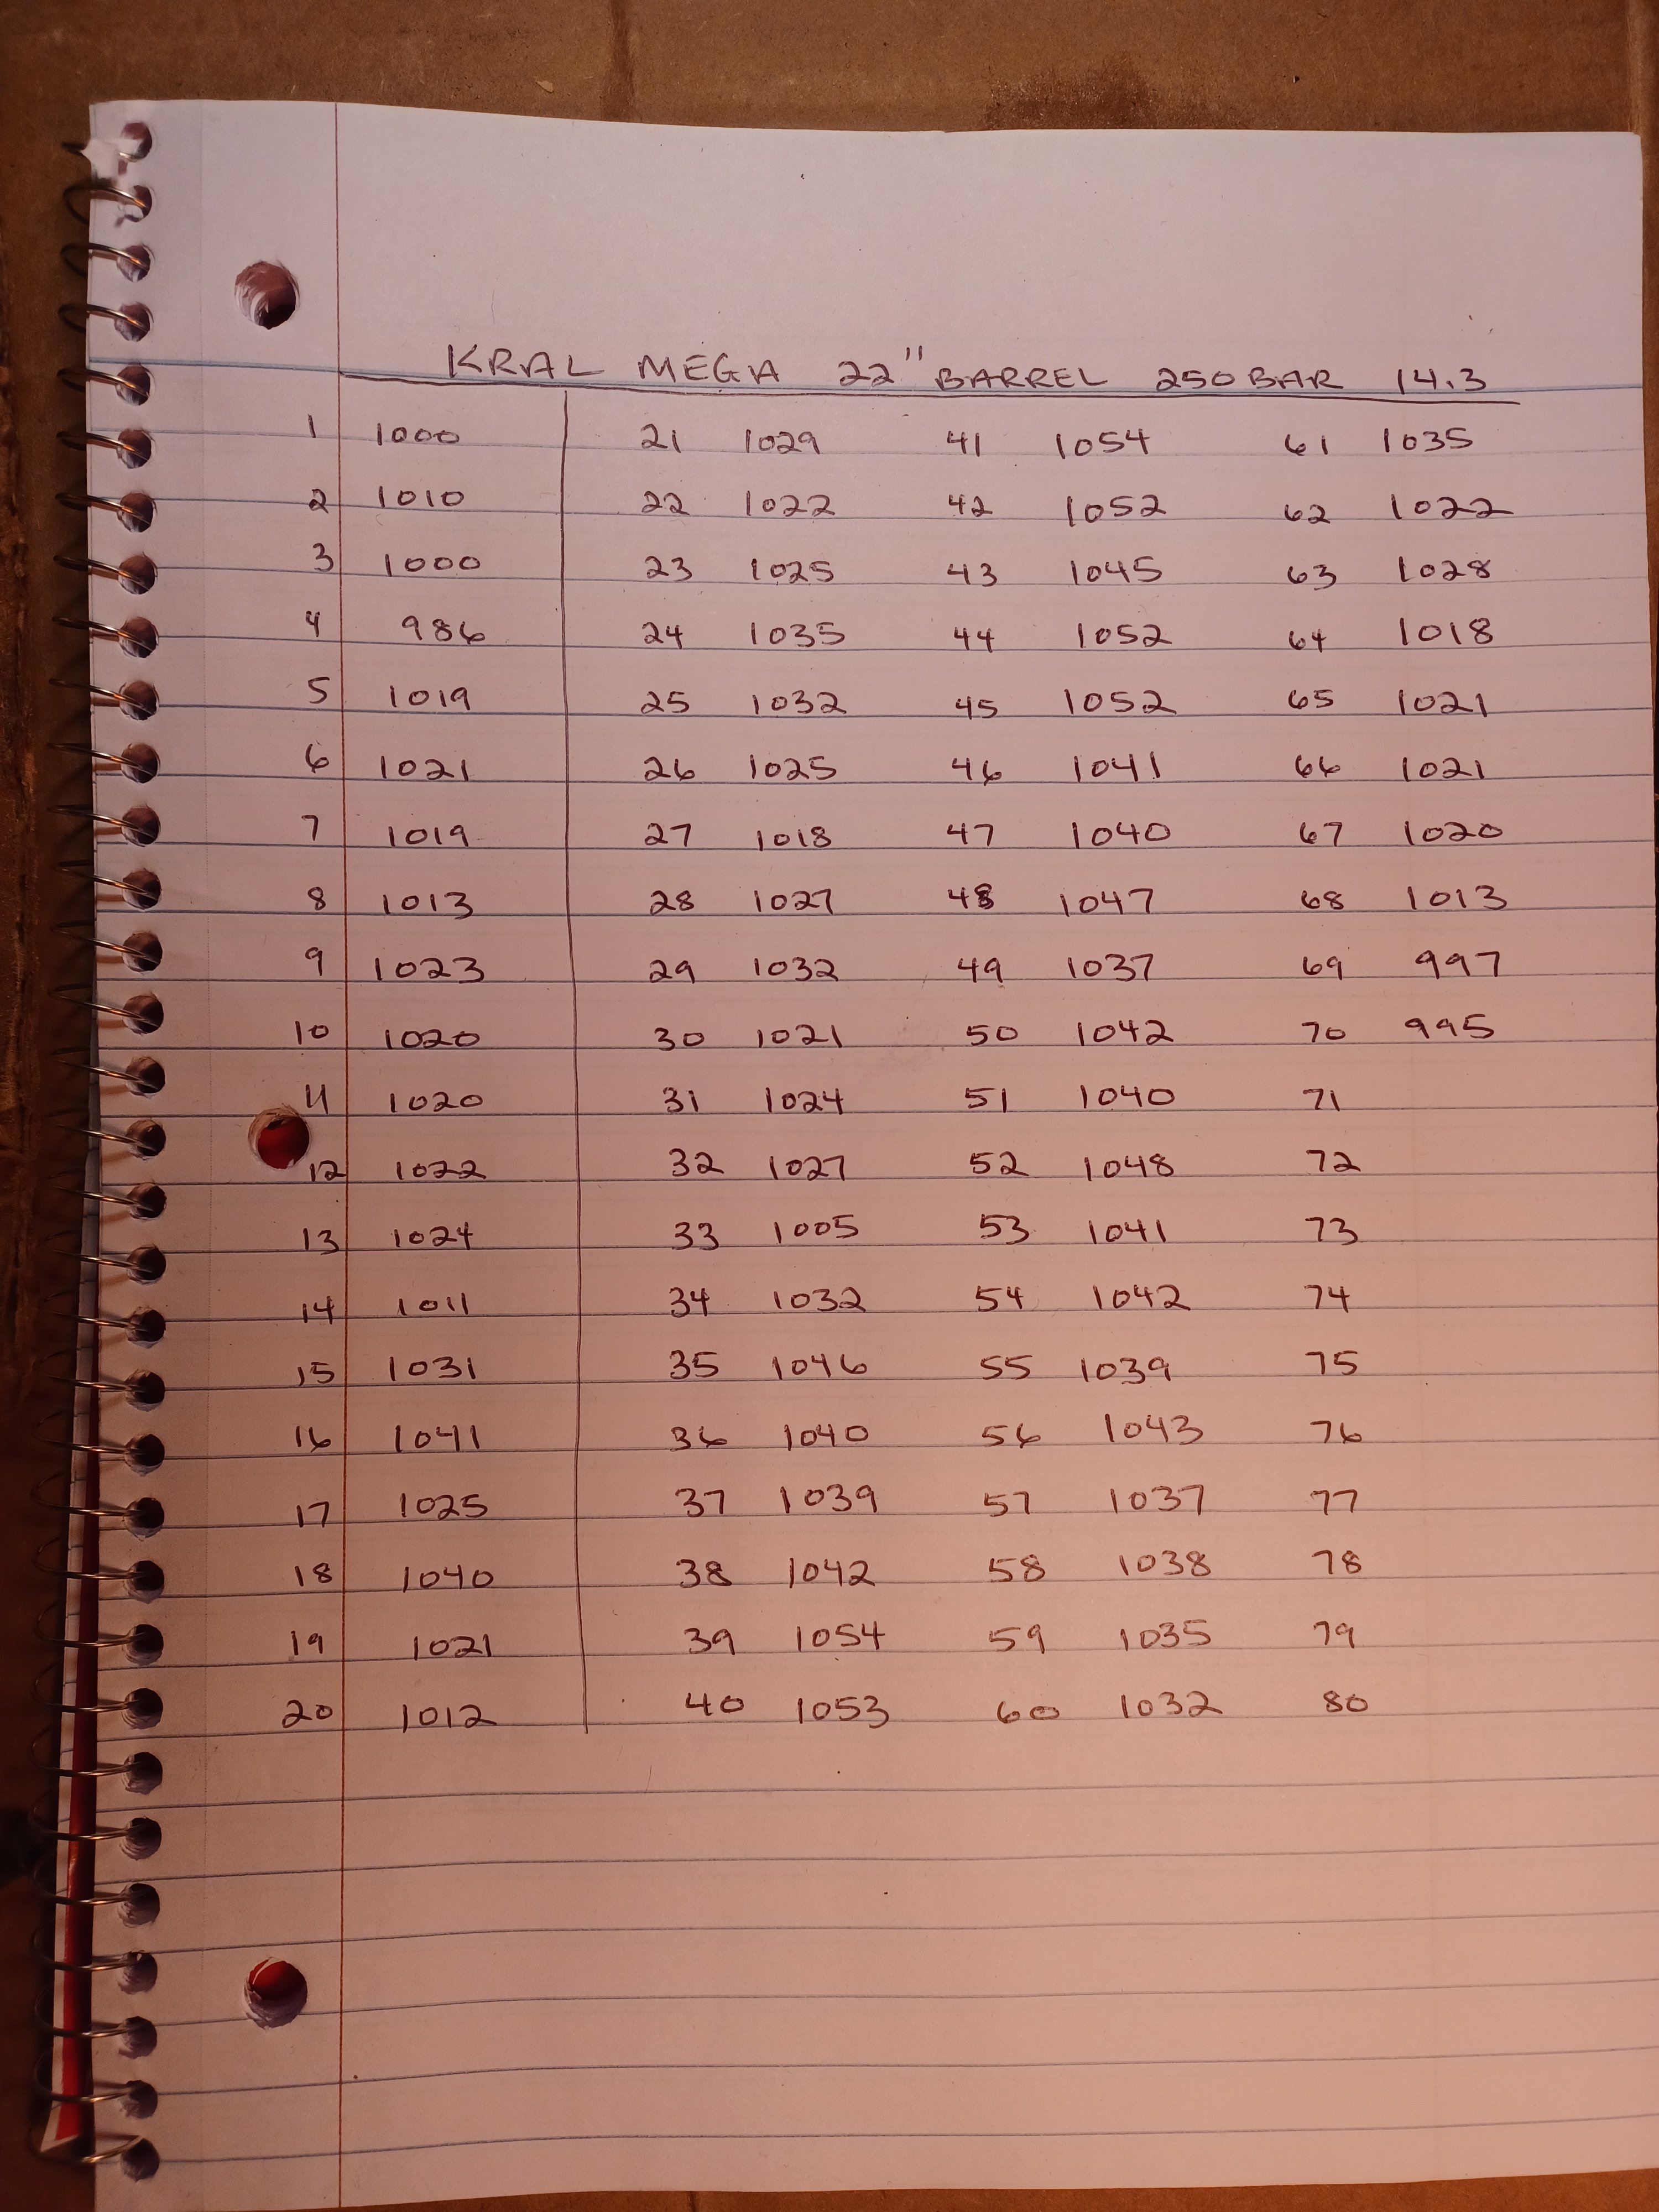 KRAL MEGA 22" BARREL 250BAR 14.3
1 1000 21 1029 41 1054 61 1035
2 1010 22 1022 42 1052 62 1022
3 1000 23 1025 43 1045 63 1028
4 986 24 1035 44 1052 64 1018
5 1019 25 1032 45 1052 65 1021
6 1021 26 1025 46 1041 66 1021
7 1019 27 1018 47 1040 67 1020
8 1013 28 1027 48 1047 68 1013
9 1023 29 1032 49 1037 69 997
10 1020 30 1021 50 1042 70 995
11 1020 31 1024 51 1040 71
12 1022 32 1027 52 1048 72
13 1024 33 1005 53 1041 73
14 1011 34 1032 54 1042 74
15 1031 35 1046 55 1039 75
16 1041 36 1040 56 1043 76
17 1025 37 1039 57 1037 77
18 1040 38 1042 58 1038 78
19 1021 39 1054 59 1035 79
20 1012 40 1053 60 1032 80